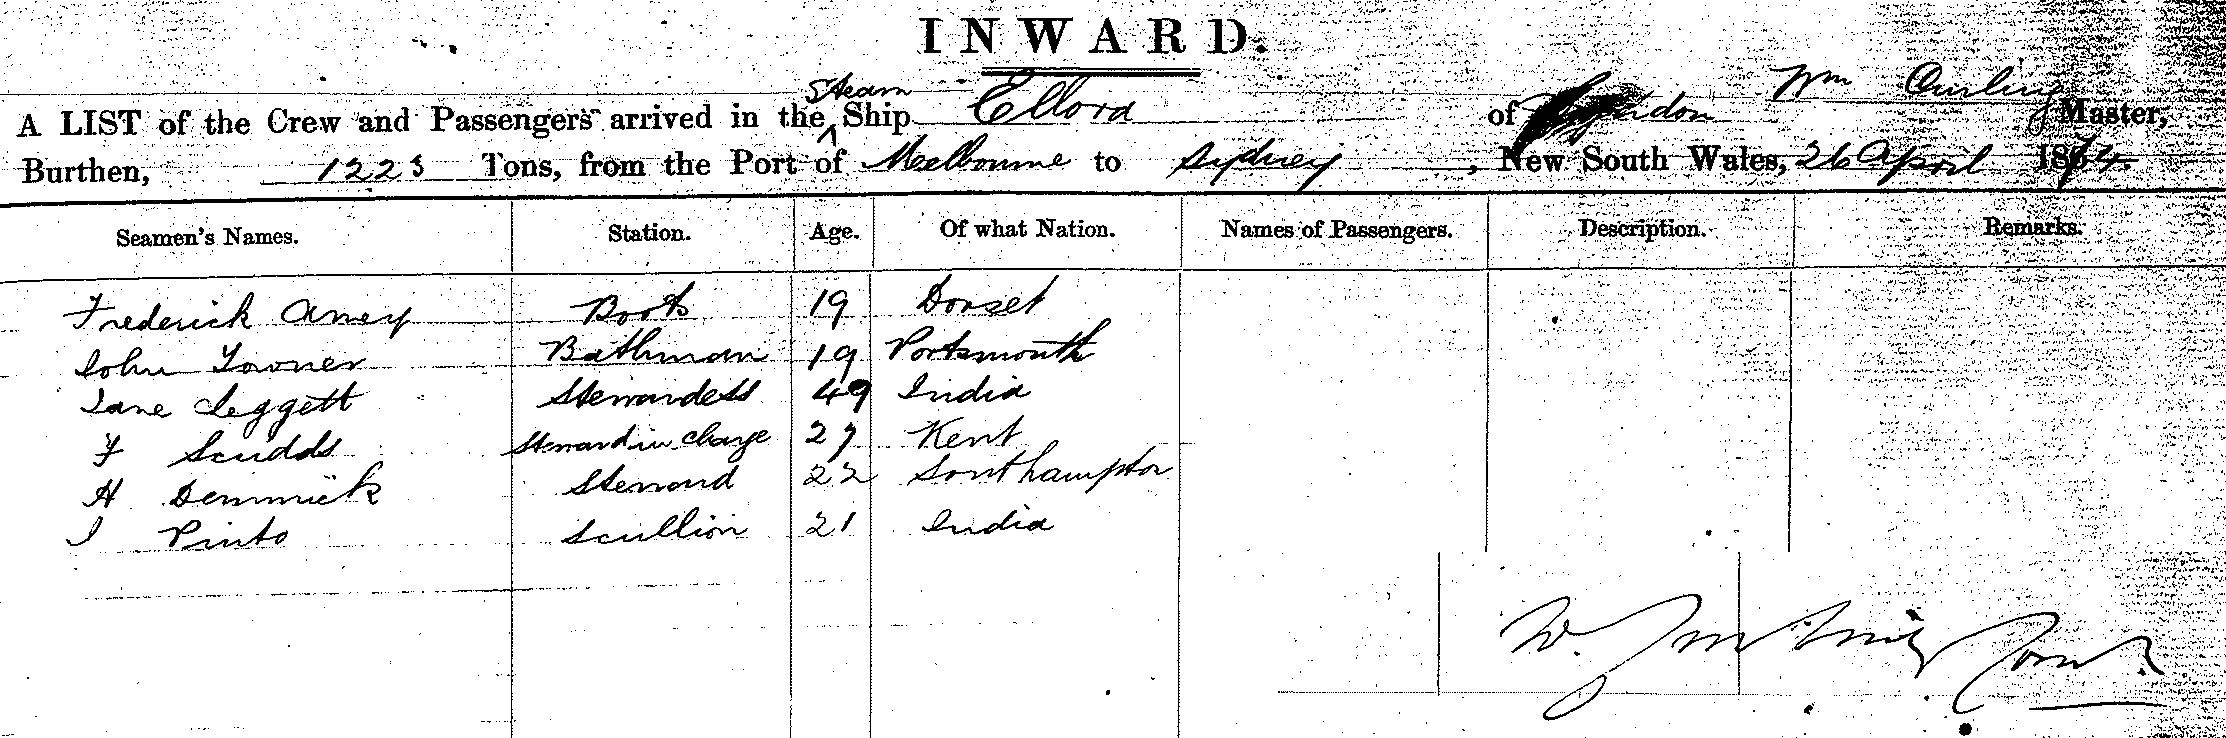 INWARD.
Steam Wm Curling
A LIST of the Crew and Passengers arrived in the Ship Ellora of London Master,
Burthen, 1223 Tons, from the Port of Melbourne to Sydney, New South Wales, 26 April 1864
Seamen's Names. Station. Age. Of what Nation. Names of Passengers. Description. Remarks.
Frederick Amey Boots 19 Dorset
John Towner Bathman 19 Portsmouth
Jane Leggett Stewardess 49 India
F Scudds Steward in Charge 27 Kent
H Demmick Steward 22 Southampton
J Pinto Scullion 21 India
W.